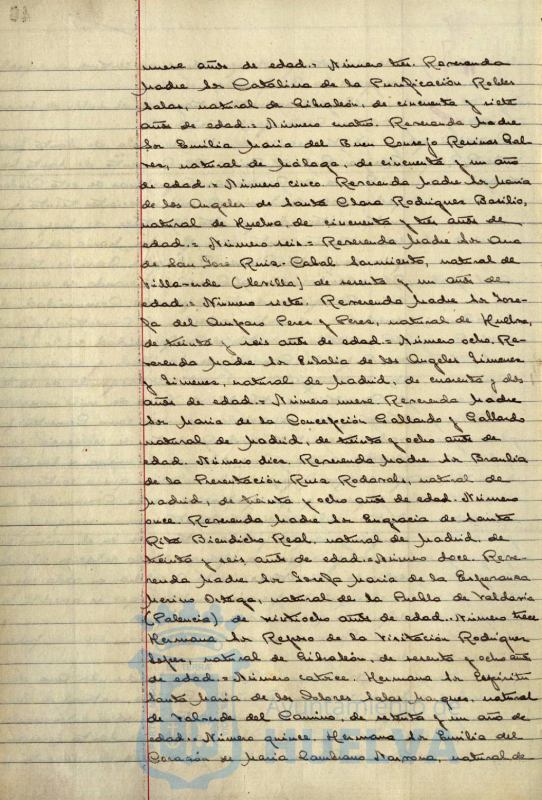 nueve años de edad.= Número tres. Reverenda
Madre Sor Catalina de la Purificación Robles
Salas, natural de Gibraleón, de cincuenta y siete
años de edad.= Número cuatro. Reverenda Madre
Sor Emilia Maria del Buen Consejo Recinos Gal-
vez, natural de Málaga, de cincuenta y un año
de edad.= Número cinco. Reverenda Madre Sor Maria
de los Angeles de Santa Clara Rodriguez Basilio,
natural de Huelva, de cincuenta y tres años de
edad.= Número seis= Reverenda Madre Sor Ana
de San José Ruiz-Cabal Sarmiento, natural de
Villaverde (Sevilla) de sesenta y un años de
edad.= Número siete. Reverenda Madre Sor Jose-
fa del Amparo Perez y Perez, natural de Huelva,
de treinta y seis años de edad.= Número ocho. Re-
verenda Madre Sor Eulalia de los Angeles Jimenez
y Jimenez, natural de Madrid, de cuarenta y dos
años de edad.= Número nueve. Reverenda Madre
Sor Maria de la Concepción Gallardo y Gallardo
natural de Madrid, de treinta y ocho años de
edad. Número diez. Reverenda Madre Sor Braulia
de la Presentación Ruiz, natural de
Madrid, de treinta y ocho años de edad. Número
once. Reverenda Madre Sor Engracia de Santa
Rita Biendicho Real, natural de Madrid, de
treinta y seis años de edad.= Número doce. Reve-
renda Madre Sor Josefa Maria de la Esperanza
Merino Ortega, natural de la Puebla de Valdavia
(Palencia) de veintiocho años de edad. Número trece
Hermana Sor Reposo de la Visitación Rodriguez
Lopez, natural de Gibraleón, de sesenta y ocho años
de edad.= Número catorce. Hermana Sor Espíritu
Santo Maria de los Dolores Salas Marquez, natural
de Valverde del Camino, de setenta y un año de
edad.= Número quince. Hermana Sor Emilia del
Corazón de Maria Zambrano, natural de
Ayuntamiento de
HUELVA